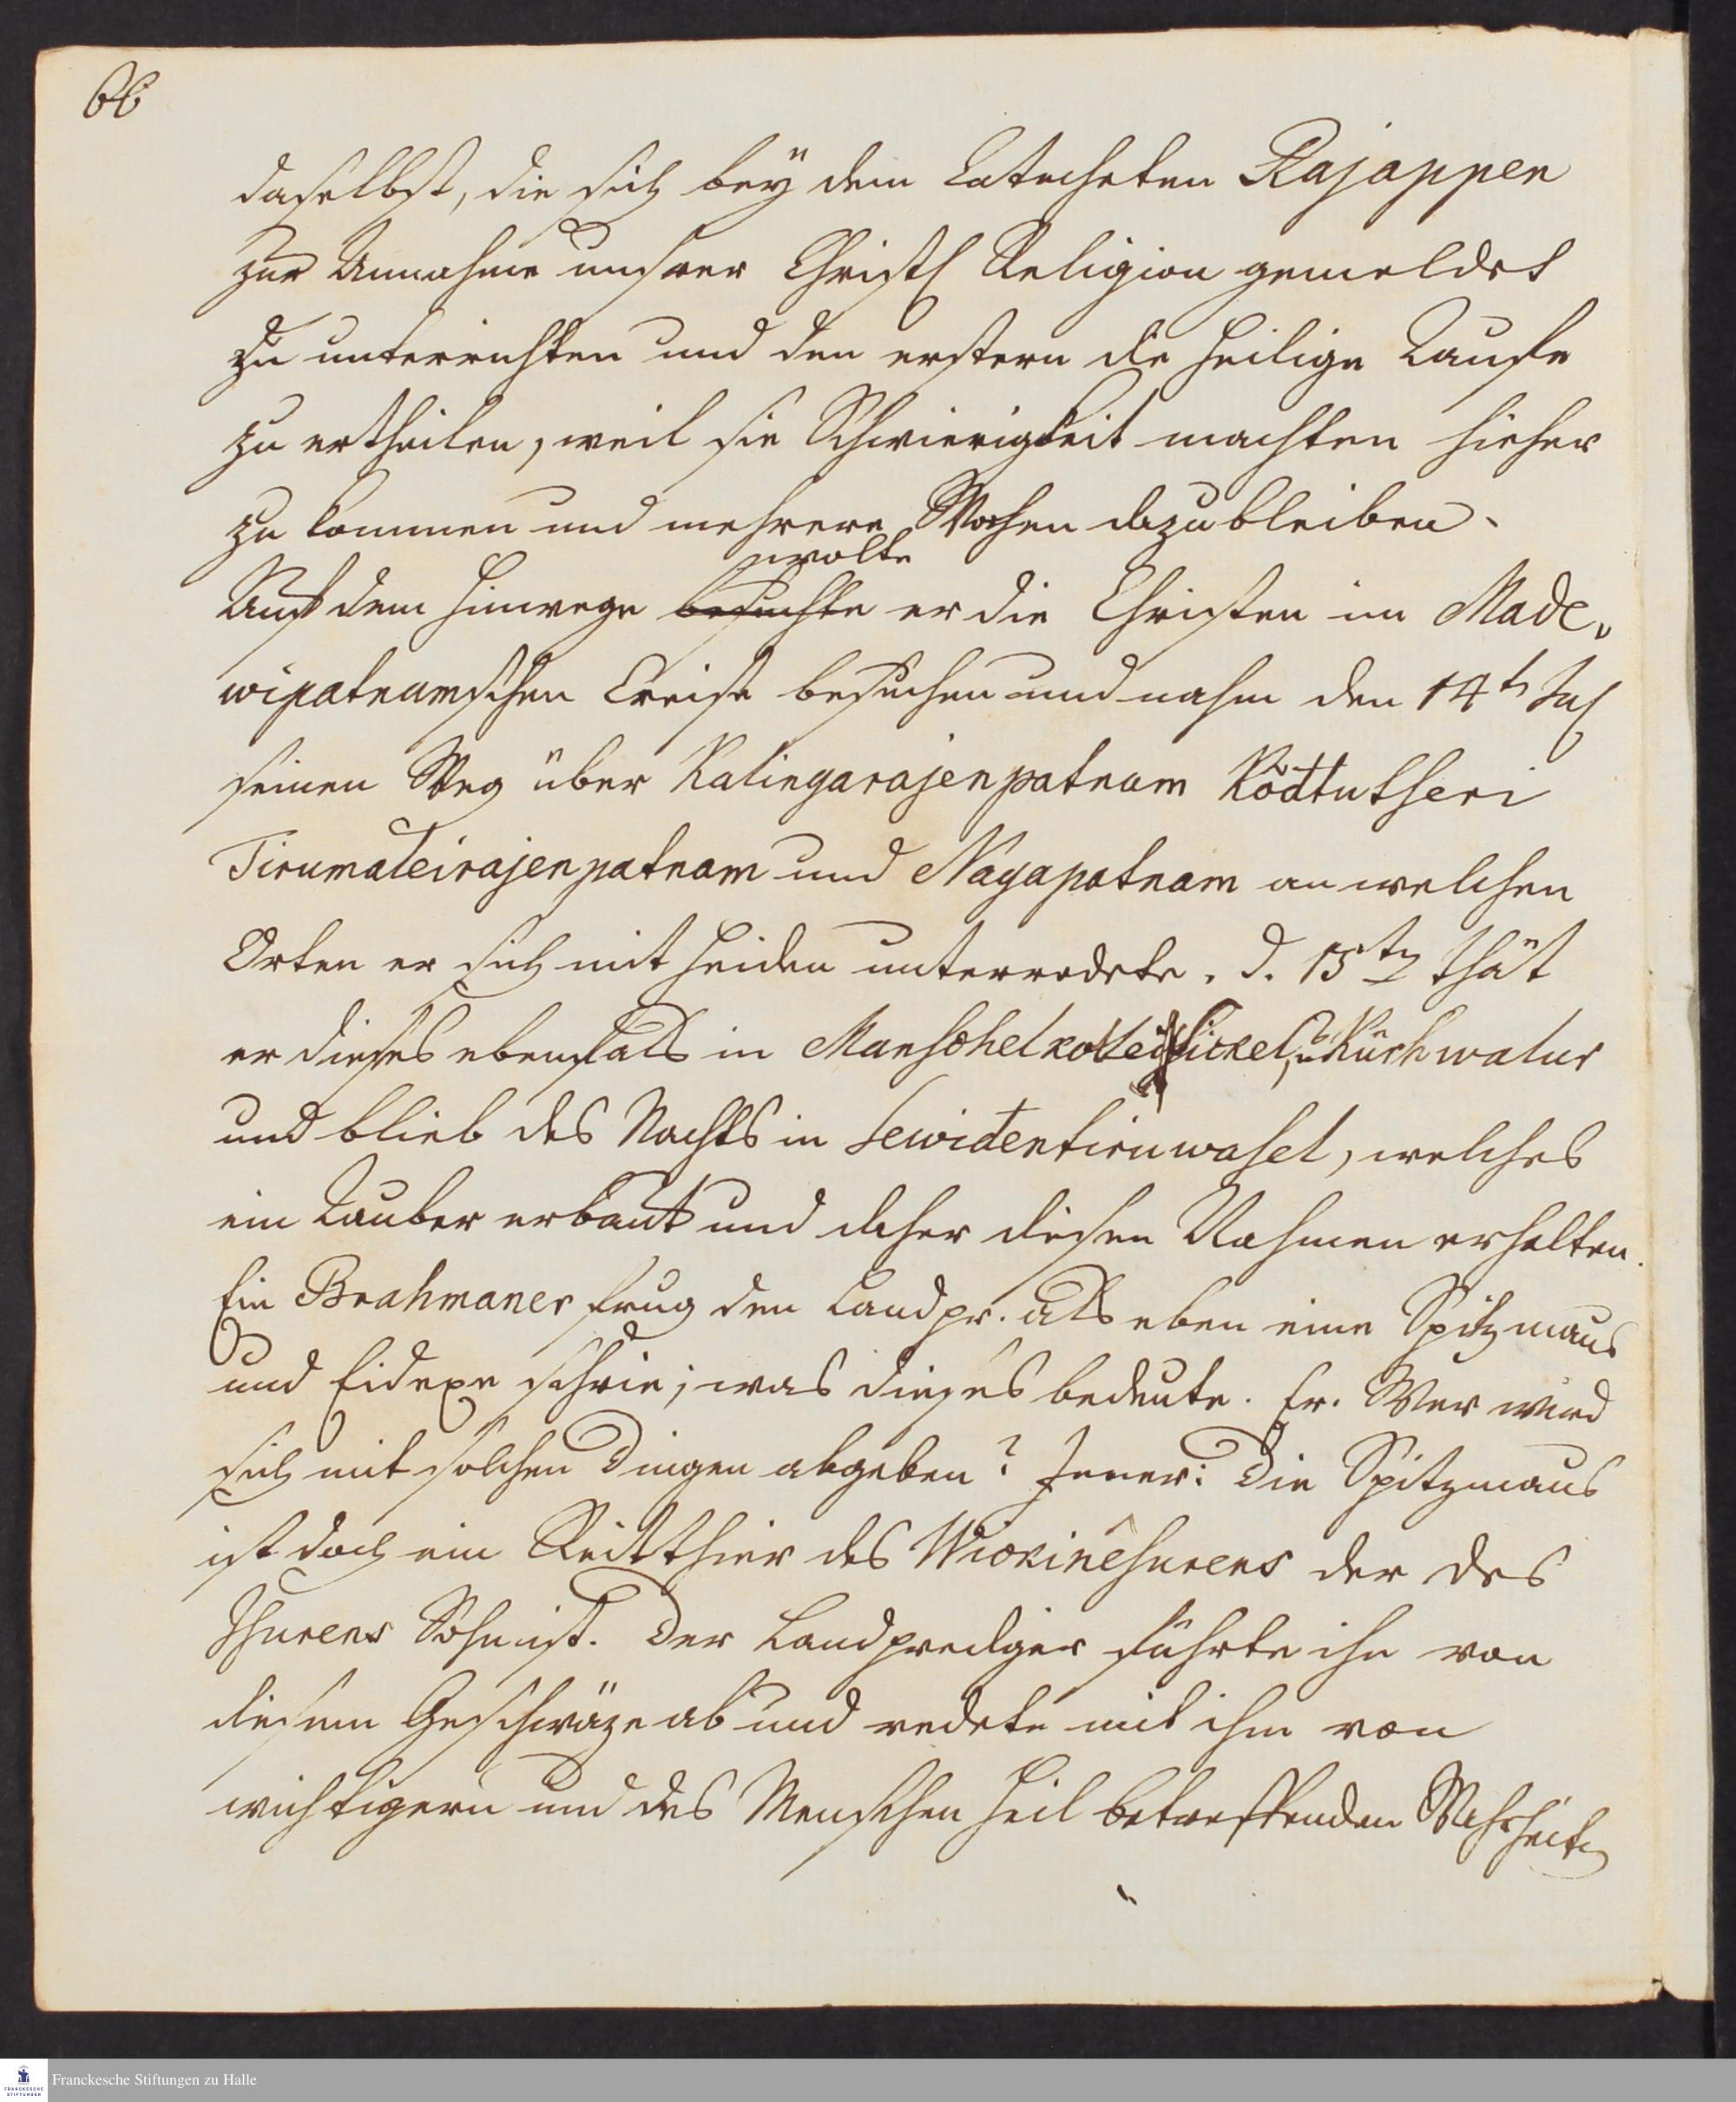 66
daselbst, die sich beÿ dem Catecheten Rajappen
zur Annahme unsrer Christl Religion gemeldet
zu unterrichten und den erstern die heilige Taufe
zu ertheilen, weil sie Schwierigkeit machten hieher
zu kommen und mehrere Wochen dazubleiben.
wolte
Auf dem Hinwege besuchte er die Christen im Made„
wipatnamschen Creise besuchen und nahm den 14t Jul
seinen Weg über Kalingarajenpatnam Köttutscheri
Tirumaleirajenpatnam und Nagapatnam an welchen
Orten er sich mit Heiden unterredete. d. 15ten thät
er dieses ebenfals in Manschelkollei Sickel, u Kürhwalur
und blieb des Nachts in Sewidentiruwasel, welches
ein Tauber erbaut und daher diesen Nahmen erhalten.
Ein Brahmaner frug den Landpr. als eben eine Spitzmaus
und Eidexe schrie; was dieses bedeute. Er. Wer wird
sich mit solchen Dingen abgeben? Jener: Die Spitzmaus
ist doch ein Reitthier des Wickinêsurens der des
Isurens Sohn ist. Der Landprediger führte ihn von
diesem Geschwäze ab und redete mit ihm von
wichtigern und des Menschen Heil betreffenden Wahrheiten
Franckesche Stiftungen zu Halle